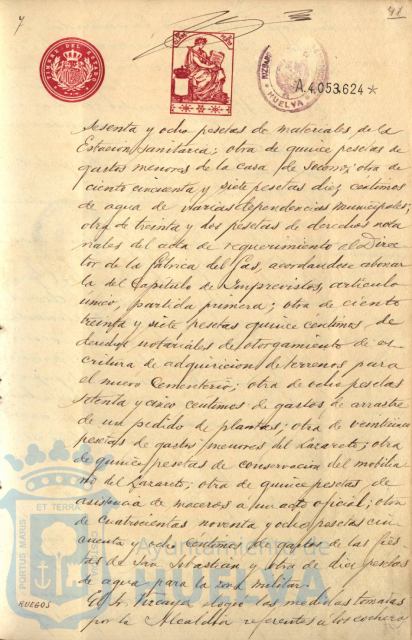 7
41
TIMBRE DEL ESTADO
HUELVA
A.4.053.624*
Sesenta y ocho pesetas de materiales de la
Estacion Sanitaria; otra de quince pesetas de
gastos menores de la casa de Socorro; otra de
ciento cincuenta y siete pesetas diez centimos
de agua de varias dependencias municipales;
otra de treinta y dos pesetas de derechos nota
riales del acta de requerimiento al Direc
tor de la fábrica del Gas, acordandose abonar
la del Capitulo de Imprevistos, articulo
único, partida primera; otra de ciento
treinta y siete pesetas quince céntimos de
derechos notariales de otorgamiento de es
critura de adquisicion de terrenos para
el nuevo Cementerio; otra de ocho pesetas
setenta y cinco céntimos de gastos de arrastre
de un pedido de plantas; otra de veinticinco
pesetas de gastos menores del Lazareto; otra
de quince pesetas de conservacion del mobilia
rio del Lazareto; otra de quince pesetas de
asistencia de maceros a un acto oficial; otra
de cuatrocientas noventa y ocho pesetas cin
cuenta y ocho centimos de gastos de las fies
tas de San Sebastian y otra de diez pesetas
de agua para la zona militar.
RUEGOS
El Sr. Vizcaya elogia las medidas tomadas
por la Alcaldia referentes a los cocheros
PORTUS MARIS ET TERRAE
Ayuntamiento de
HUELVA